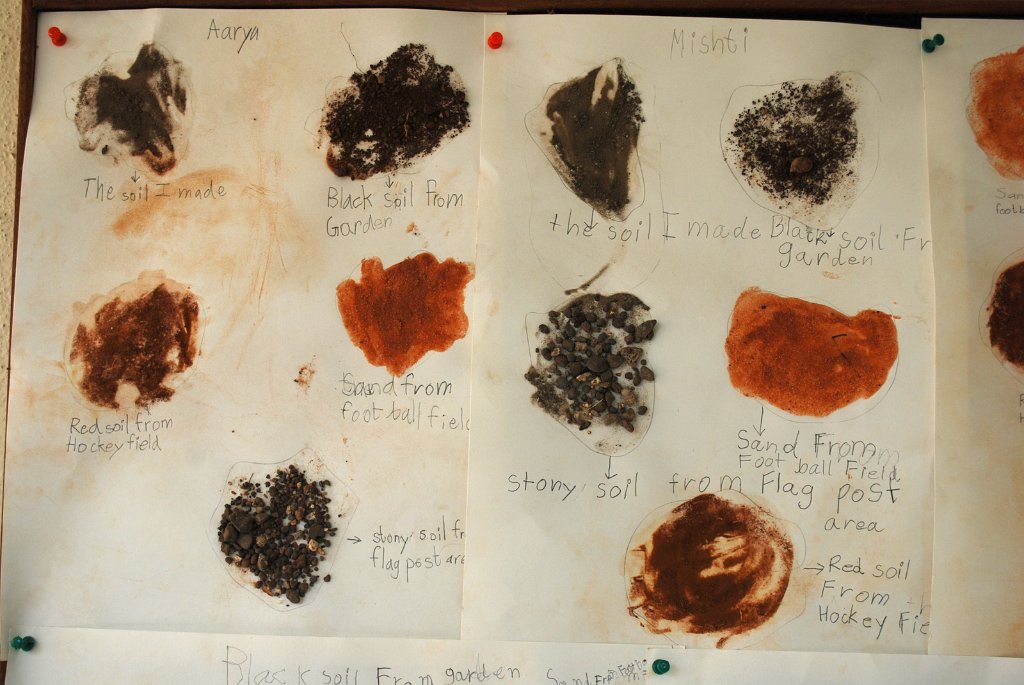 Aarya
The soil I made
Black soil from
Garden
Red soil from
Hockey field
Sand from
foot ball field
stony soil fr
flag post are
Mishti
the soil I made
Black soil Fr
garden
Sand From
Foot ball Field
stony soil from Flag post
area
Red soil
From
Hockey Fie
San
footb
Black soil From garden